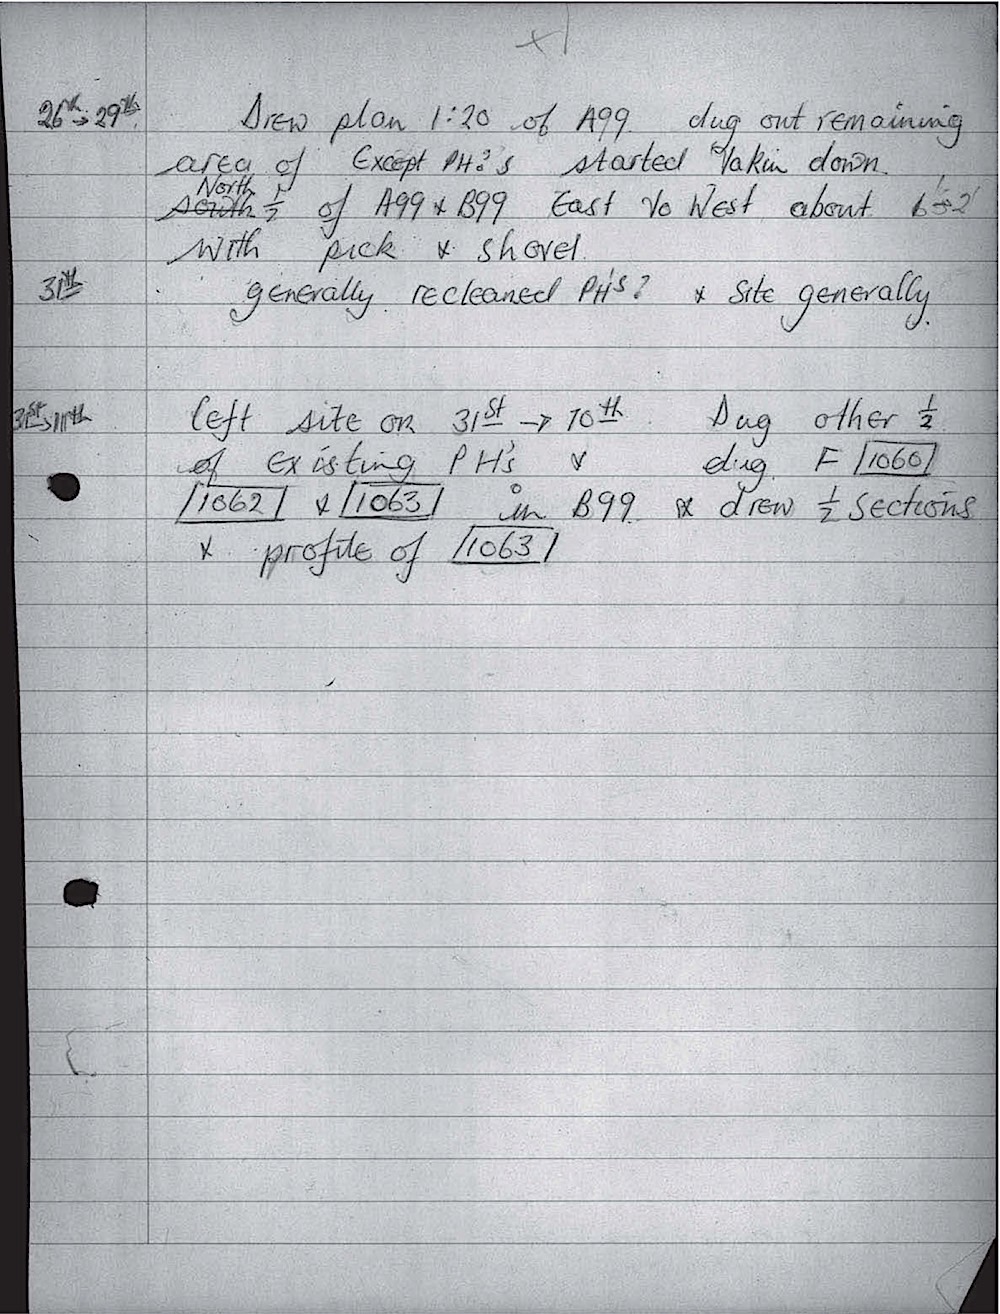 26th → 29th. Drew plan 1:20 of A99. dug out remaining
area of Except PH?'s started takin down.
North
south ½ of A99 & B99 East to West about
with pick & shovel.
31th generally recleaned PH's? & Site generally.
31st → 11th left site on 31st → 10th. Dug other ½
of existing PH's & dug F 1060
1062 & 1063 in B99. & drew ½ sections
& profile of 1063